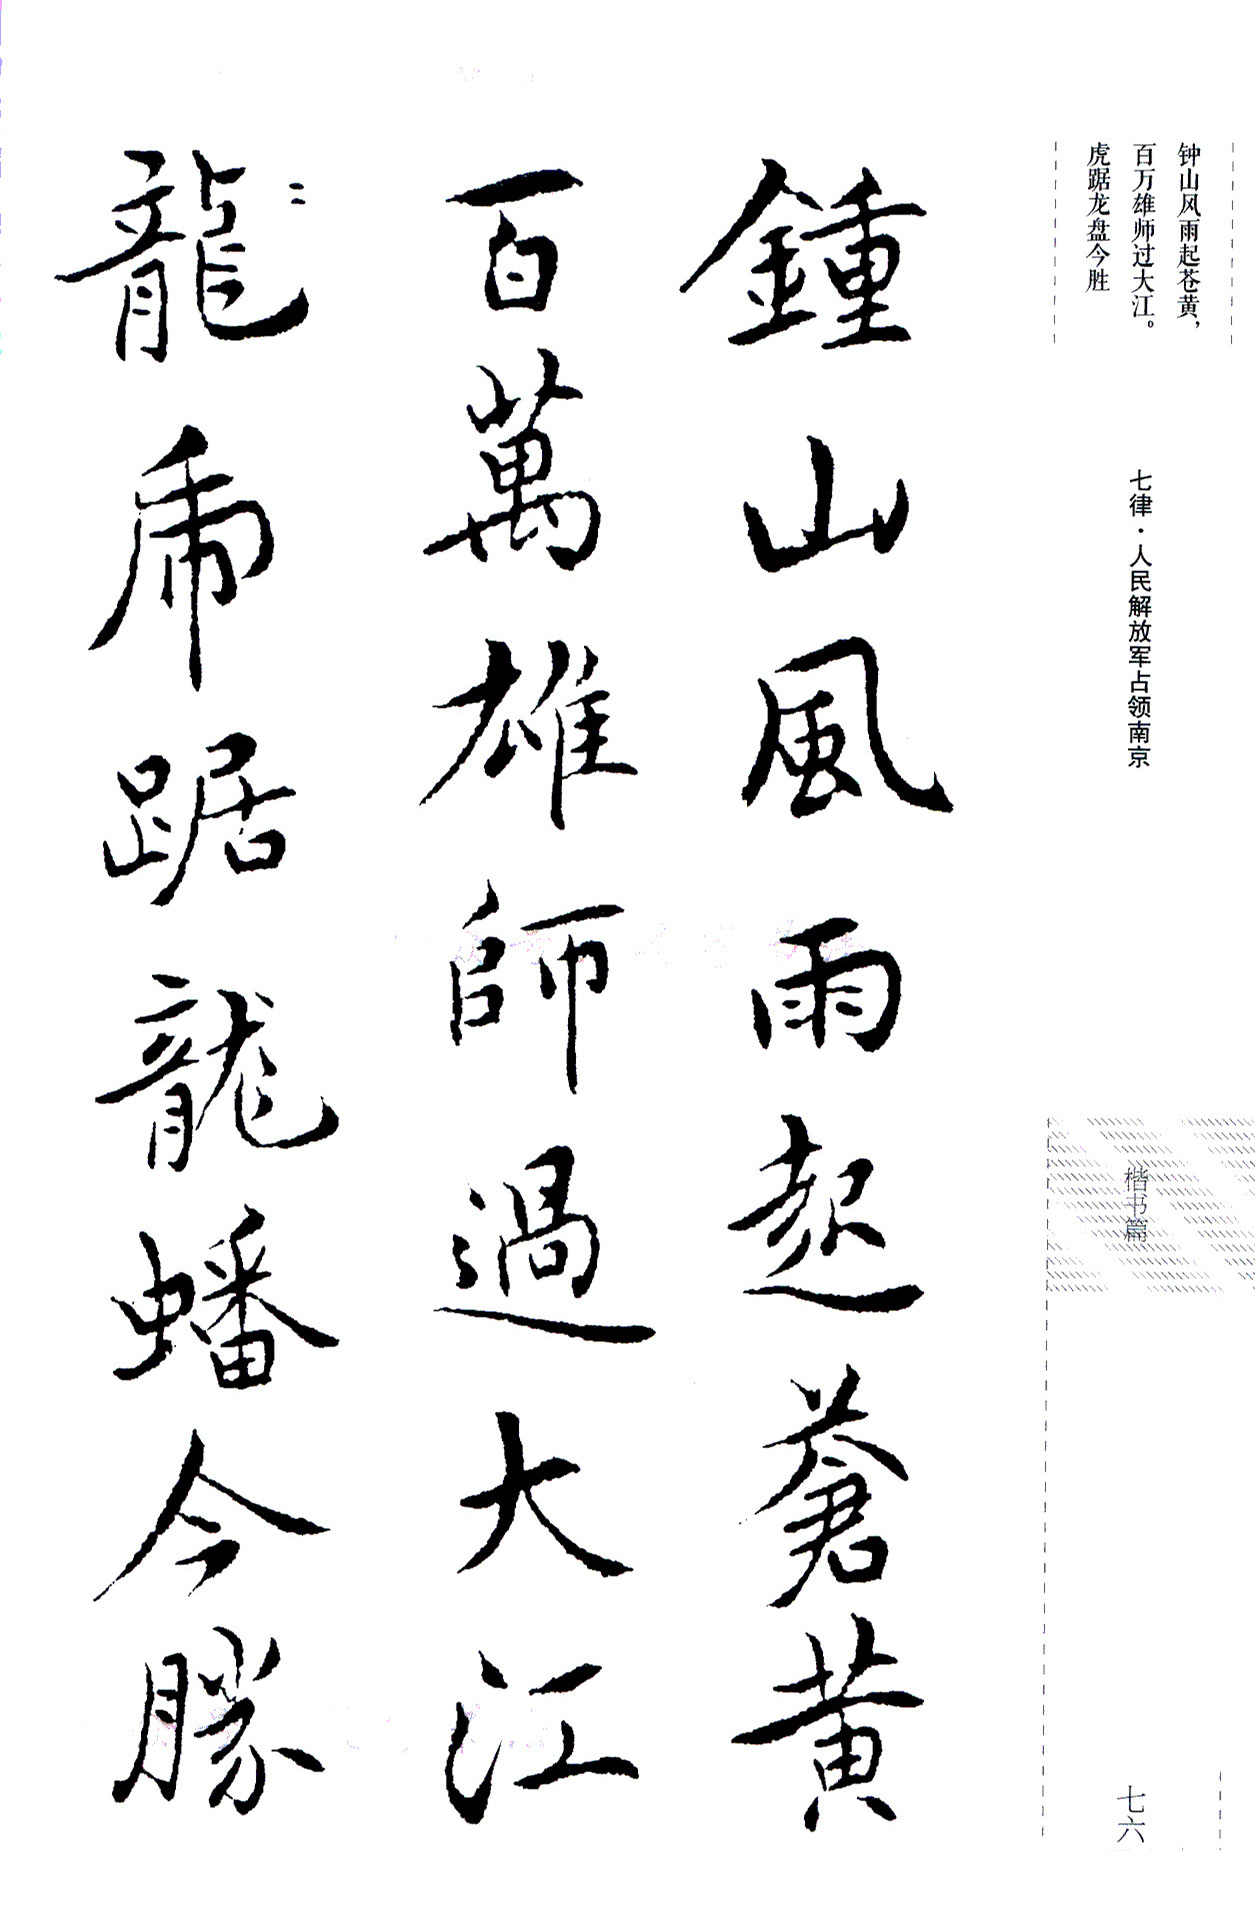 钟山风雨起苍黄,
百万雄师过大江。
虎踞龙盘今胜
七律·人民解放军占领南京
楷书篇
七六
鍾山風雨起蒼黄
百萬雄師過大江
龍虎踞龍蟠今勝